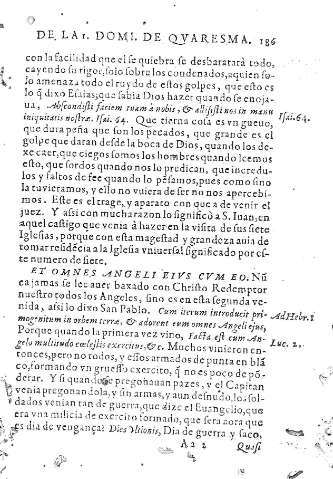 DE LA 1. DOMI. DE QVARESMA. 186
con la facilidad que el se quiebra se desbaratarà todo,
cayendo su rigor, solo sobre los condenados, aquien so
lo amenaza todo el ruydo de estos golpes, que esto es
lo q̃ dixo Esaias, que sabia Dios hazer quando se enoja-
ua, Abscondisti faciem tuam à nobis, & allisisti nos in manu
Isai. 64.
iniquitatis nostræ. Isai. 64. Que tierna cosa es vn gueuo,
que dura peña que son los pecados, que grande es el
golpe que daran desde la boca de Dios, quando los de-
xe caer, que ciegos somos los hombres quando leemos
esto, que sordos quando nos lo predican, que incredu-
los y faltos de fee quando lo pesamos, pues como sino
la tuvieramos, y ello no vuiera de ser no nos apercebi-
mos. Este es el trage, y aparato con que a de venir el
juez. Y assi con mucha razon lo significò a S. Iuan, en
aquel castigo que venia à hazer en la visita de sus siete
Iglesias, porque con esta magestad y grandeza auia de
tomar residẽcia a la Iglesia vniuersal significado por es-
te numero de siete.
ET OMNES ANGELI EIVS CVM EO. Nũ
ca jamas se lee auer baxado con Christo Redemptor
nuestro todos los Angeles, sino es en esta segunda ve-
nida, assi lo dixo San Pablo. Cum iterum introducit pri-
Ad Hebr. 1
mogenitum in orbem terræ, & adorent eum omnes Angeli ejus,
Porque quando la primera vez vino, Facta est cum An-
Luc. 2.
gelo multitudo cœlestis exercitus, &c. Muchos vinieron en-
tonces, pero no todos, y essos armados de punta en blã
co, formando vn gruesso exercito, q̃ no es poco de põ-
derar. Y si quando se pregonauan pazes, y el Capitan
venia pregonandola, y sin armas, y aun desnudo, los sol-
dados venian tan de guerra, que dize el Euangelio, que
era vna milicia de exercito formado, que sera aora que
es dia de vengança? Dies vltionis, Dia de guerra y saco,
A a 2 Quasi